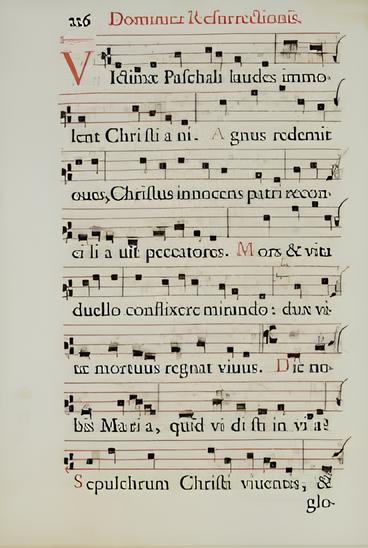 116 Dominicæ Resurrectionis
VIctimæ Paschali laudes immo-
lent Christiani. Agnus redemit
oues, Christus innocens patri recon-
ciliauit peccatores. Mors & vita
duello conflixere mirando: dux vi-
tæ mortuus regnat viuus. Dic no-
bis Maria, quid vidisti in via?
Sepulchrum Christi viuentis, &
glo-